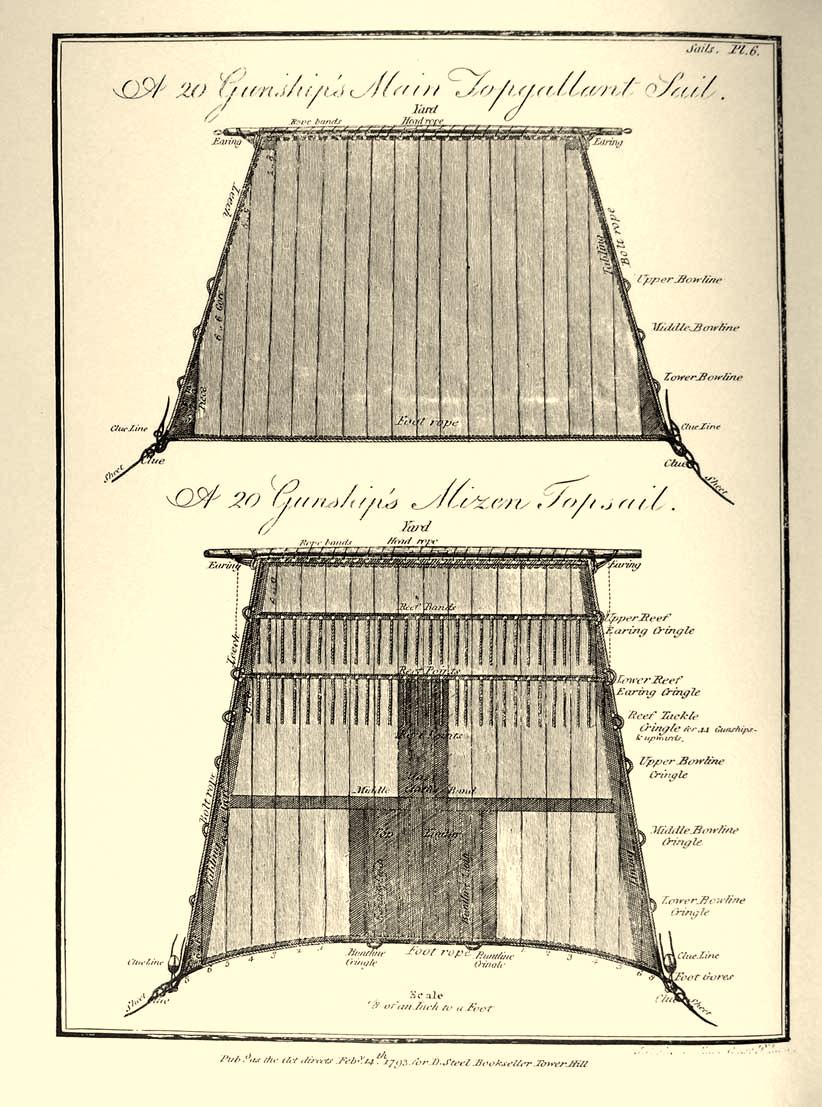 Sails. Pl.6.
A 20 Gunship's Main Topgallant Sail.
Yard
Rope bands Head rope
Earing Earing
Leech
Tabling
Bolt rope
6.6 Gore
Upper Bowline
Middle Bowline
Lower Bowline
Piece
Foot rope
Clue Line Clue Line
Clue Clue
Sheet Sheet
A 20 Gunship's Mizen Topsail.
Yard
Rope bands Head rope
Earing Earing
Reef Bands
Upper Reef
Earing Cringle
Leech
Reef Points
Lower Reef
Earing Cringle
Reef Tackle
Cringle for 44 Gunships
& upwards.
Reef Points
Upper Bowline
Cringle
Mast
Middle Cloths Band
Bolt rope
Top Lining
Middle Bowline
Cringle
Tabling
Lining
Buntline Cloth
Buntline Cloth
Lower Bowline
Cringle
Foot rope
Buntline
Cringle
Buntline
Cringle
Clue Line Clue Line
Foot Gores
Clue Clue
Sheet Sheet
Scale
1/8 of an Inch to a Foot
Pub.d as the Act directs Feb.y 14.th 1793 for D. Steel Bookseller Tower Hill